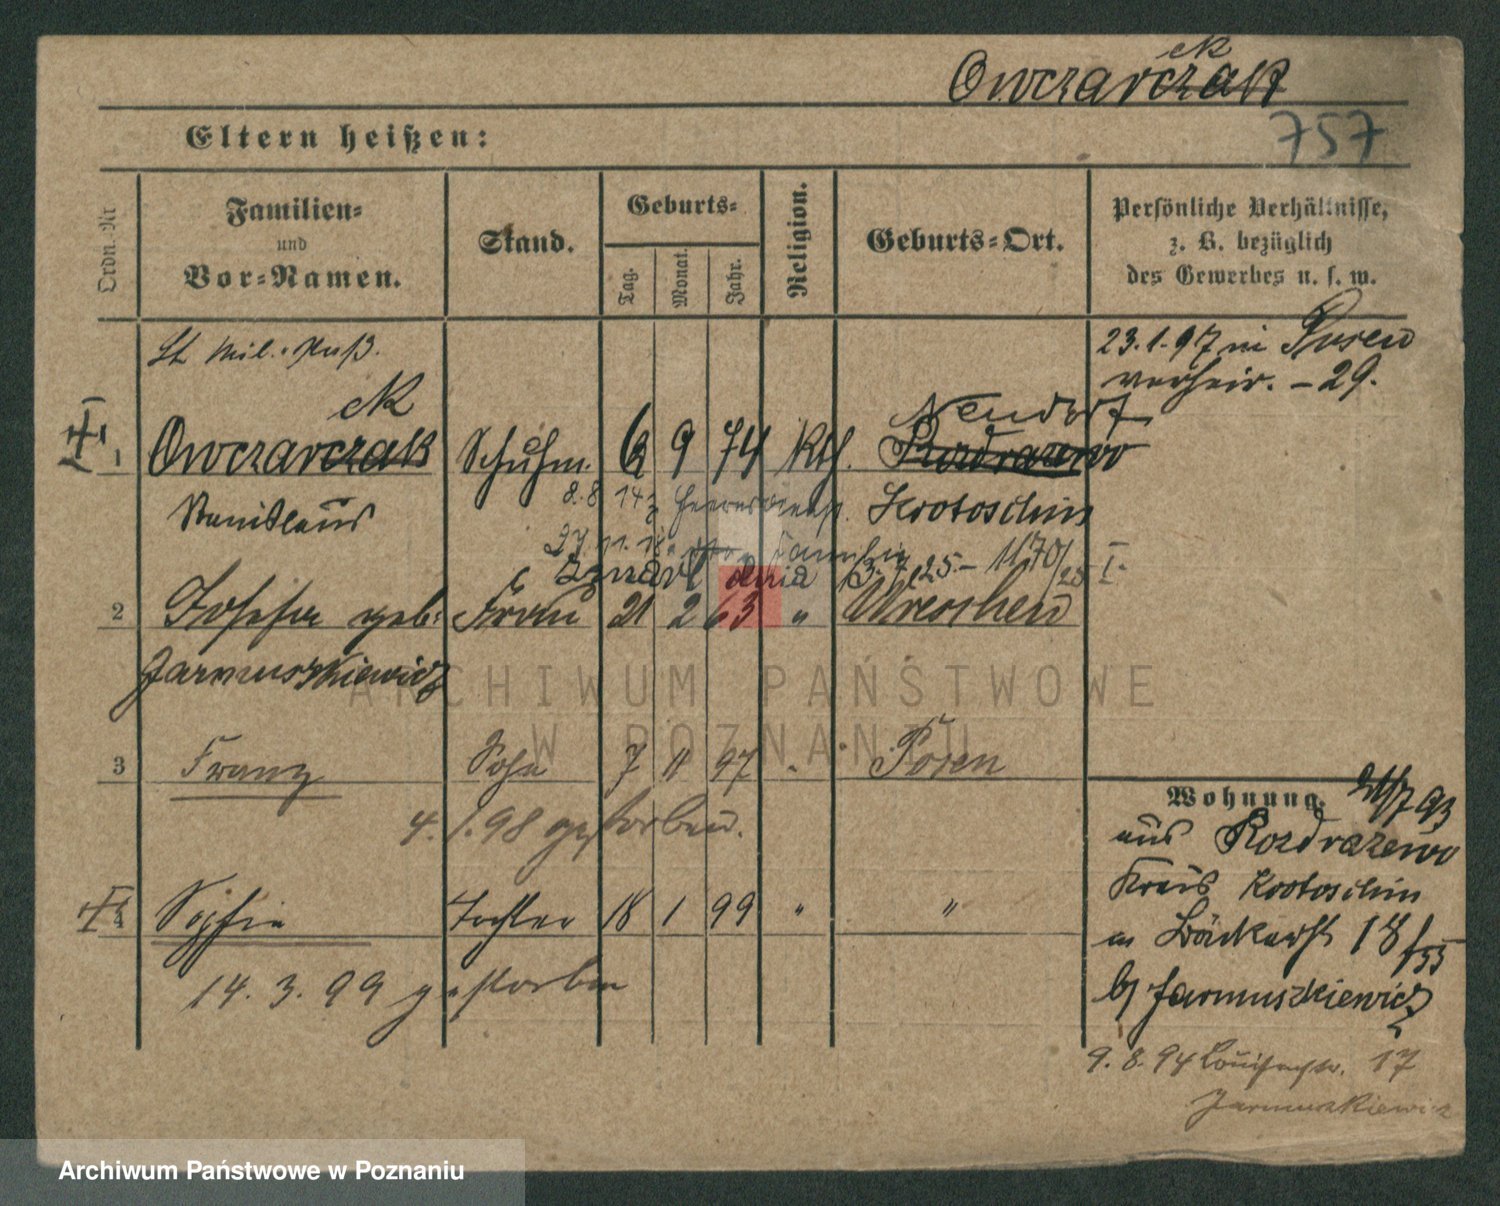 ek
Owczarczak
757
Eltern heißen:
Ordn. Nr
Familien=
und
Vor=Namen.
Stand.
Geburts=
Tag.
Monat.
Jahr.
Religion.
Geburts=Ort.
Persönliche Verhältnisse,
z. B. bezüglich
des Gewerbes u. s. w.
Lt Mil.-Paß.
23.1.97 in Posen
verheir. - 29.
ek
Neudorf
1 Owczarczak Schuhm. 6 9 74 Kth. Rozdrazewo
Stanislaus Krotoschin
8.8 14
27.11.18
Zmarł dnia 3.7.25.- 1170/25 I.
2 Josefa geb. Frau 21 2 63 " Wreschen
Jarmuszkiewicz
3 Franz Sohn 7 11 97 " Posen
4.1.98 gestorben.
4 Sophie Tochter 18 1 99 " "
14.3.99 gestorben
Wohnung. 24/7 93
aus Rozdrazewo
Kreis Krotoschin
n Bäckerst 18/
b/ Jarmuszkiewicz
9.8.94 Louisenstr. 17
Jarmuszkiewicz
ARCHIWUM PAŃSTWOWE
W POZNANIU
Archiwum Państwowe w Poznaniu